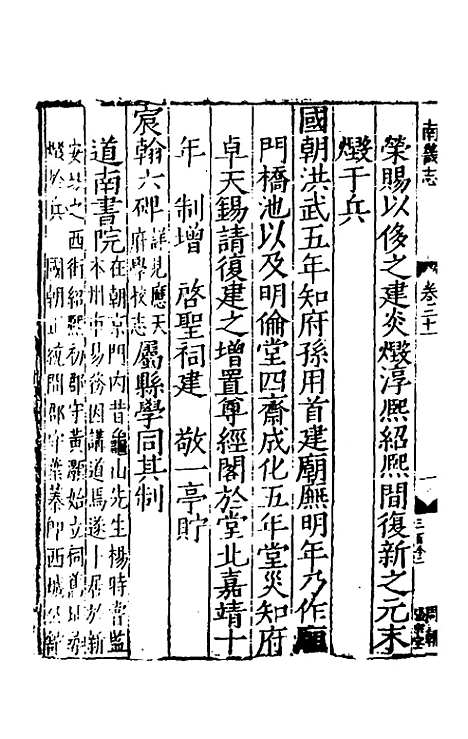 南畿志 卷二十一
榮賜以侈之建炎燬淳熙紹熙間復新之元末
燬于兵
國朝洪武五年知府孫用首建廟廡明年乃作廟
門橋池以及明倫堂四齋成化五年堂災知府
卓天錫請復建之增置尊經閣於堂北嘉靖十
年 制增 啓聖祠建 敬一亭貯
宸翰六碑詳見應天府學校志屬縣學同其制
道南書院在朝京門內昔龜山先生楊時嘗監
本州市易務因講道焉遂卜居於新
安坊之西街紹熙初郡守黃灝始立祠舊址
燬於兵 國朝正統間郡守葉蓁即西城